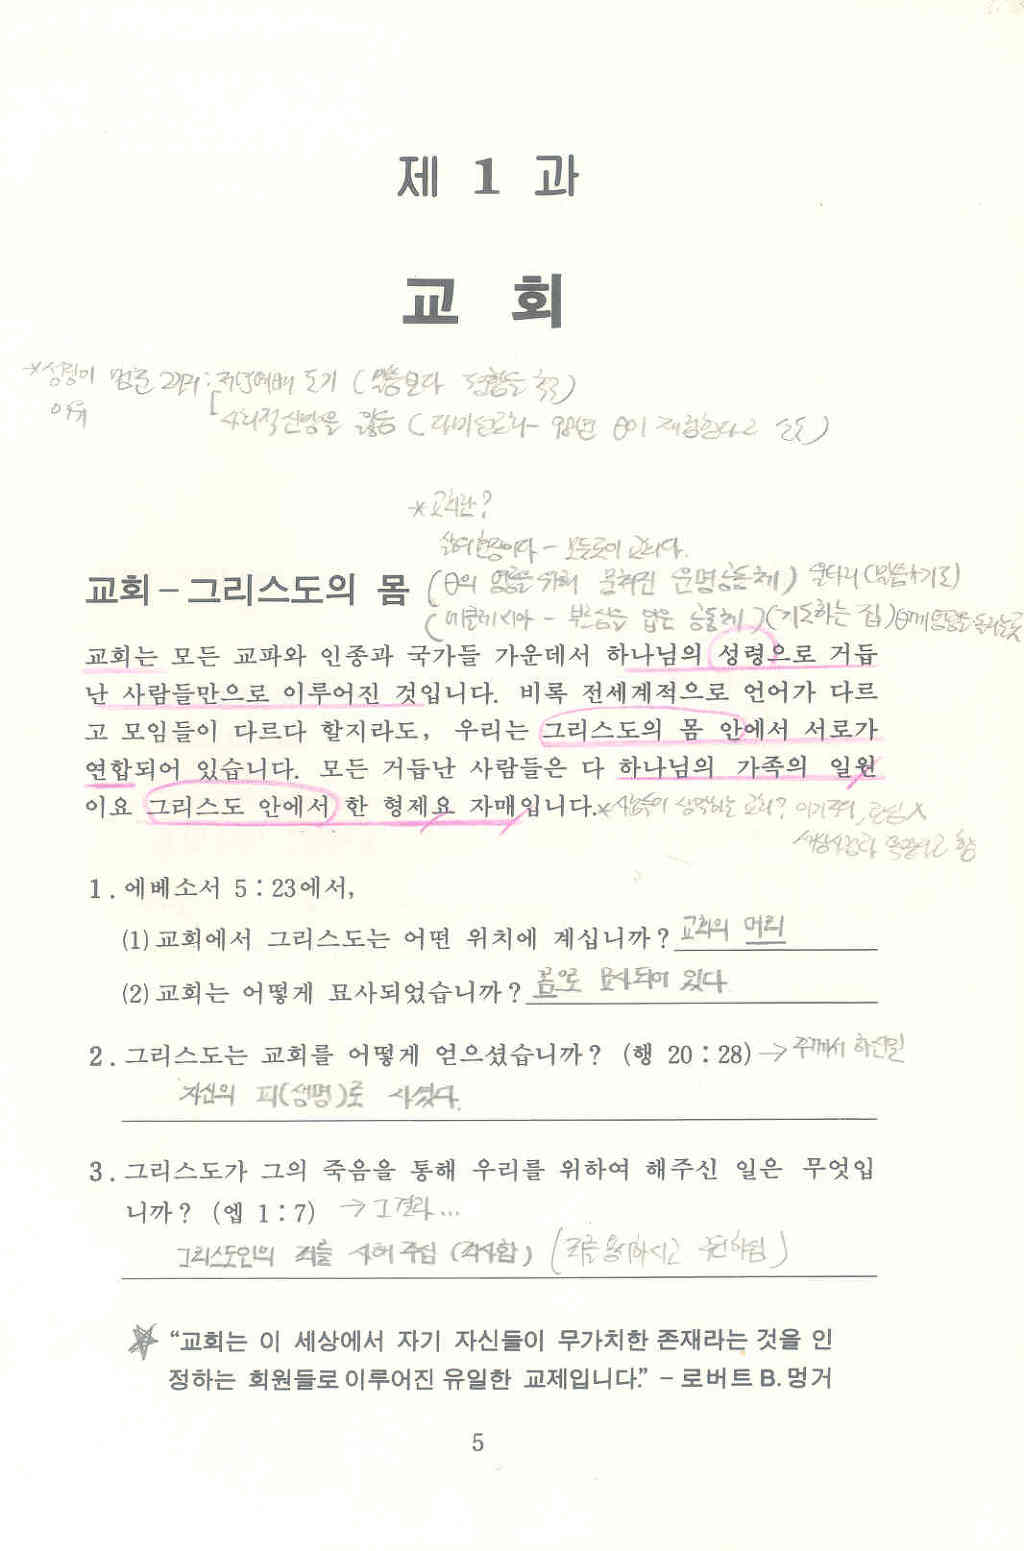 제 1 과
교 회
*성령이 멈춘 교회:
이유
(다미선교회- 98년 θ이 재림한다고
*교회란?
삶의 현장이다 - 모든곳이 교회다.
교회 – 그리스도의 몸 (θ의 영광을 위해 뭉쳐진 운명공동체) 울타리(말씀+기도)
(에클레시아 - 부르심을 입은 공동체)(기도하는 집)
교회는 모든 교파와 인종과 국가들 가운데서 하나님의 성령으로 거듭
난 사람들만으로 이루어진 것입니다. 비록 전세계적으로 언어가 다르
고 모임들이 다르다 할지라도, 우리는 그리스도의 몸 안에서 서로가
연합되어 있습니다. 모든 거듭난 사람들은 다 하나님의 가족의 일원
이요 그리스도 안에서 한 형제요 자매입니다. *사람들이 생각하는 교회?
1. 에베소서 5 : 23에서,
(1) 교회에서 그리스도는 어떤 위치에 계십니까? 교회의 머리
(2) 교회는 어떻게 묘사되었습니까? 몸으로 묘사되어 있다
2. 그리스도는 교회를 어떻게 얻으셨습니까? (행 20 : 28) → 주께서 하신일
자신의 피(생명)로 사셨다.
3. 그리스도가 그의 죽음을 통해 우리를 위하여 해주신 일은 무엇입
니까? (엡 1 : 7) → 그 결과...
그리스도인의 죄를 사해 주심 (죄사함)
“교회는 이 세상에서 자기 자신들이 무가치한 존재라는 것을 인
정하는 회원들로 이루어진 유일한 교제입니다.” – 로버트 B. 멍거
5